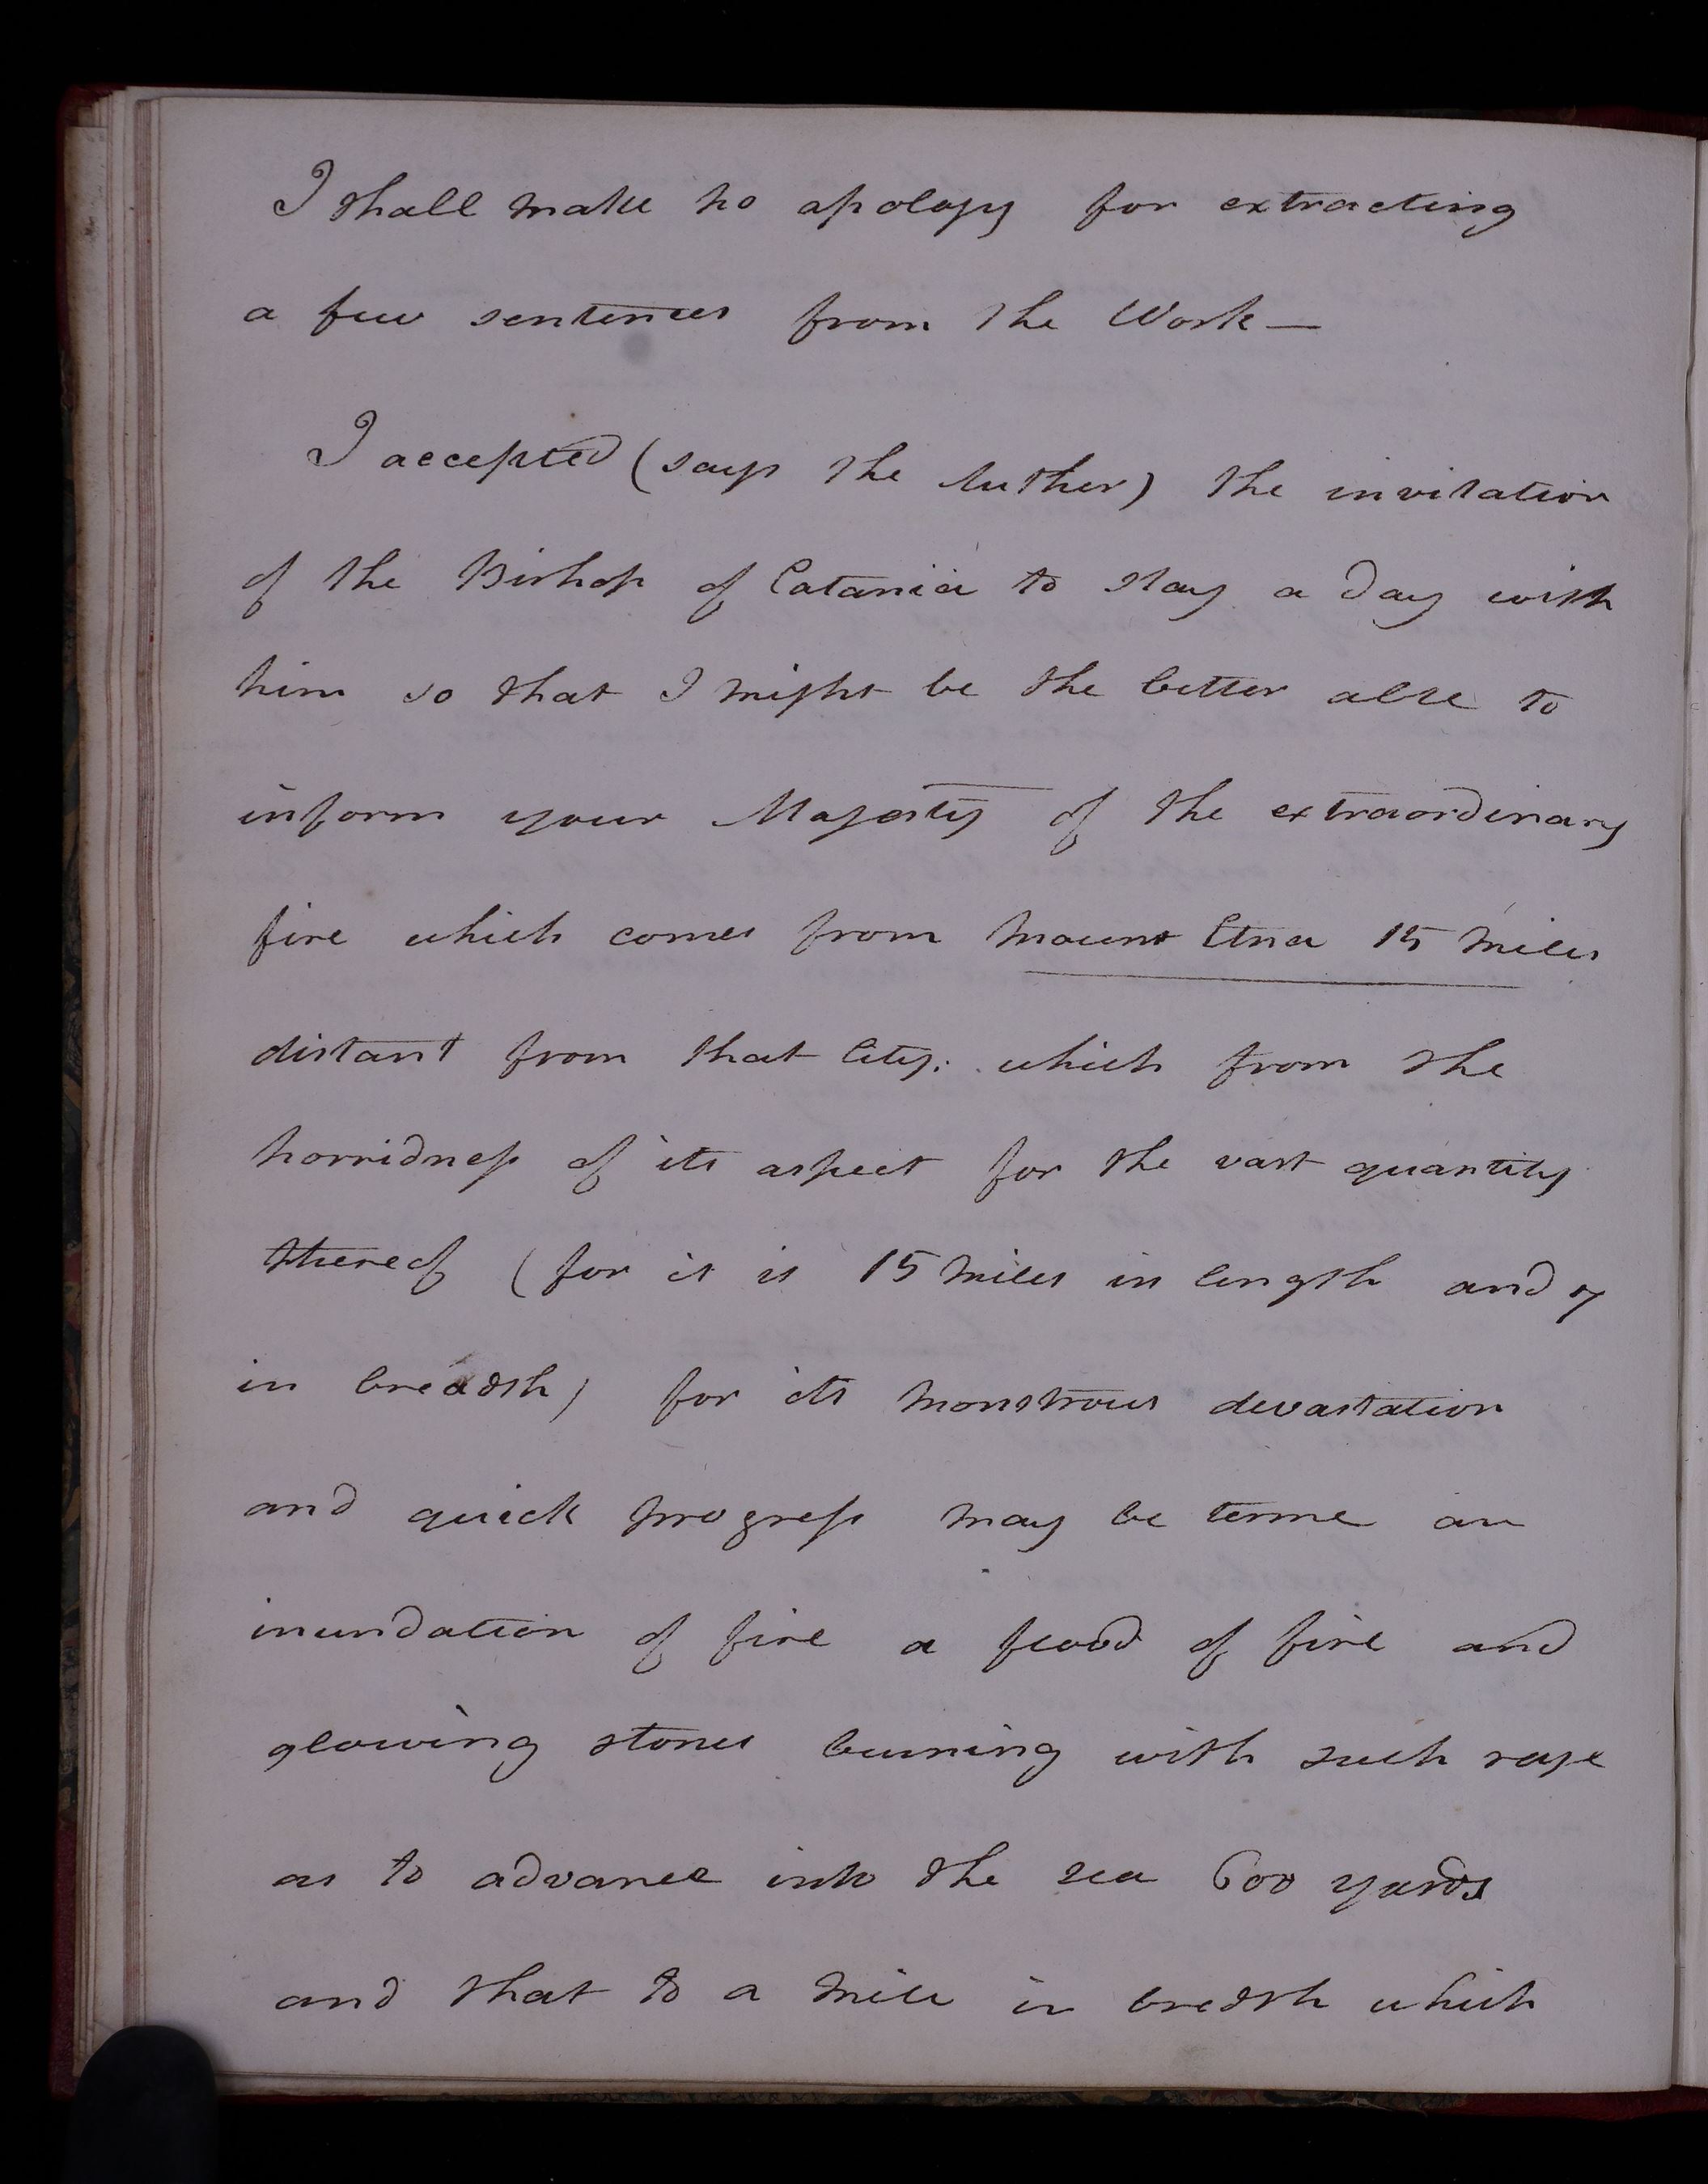 I shall make no apology for extracting
a few sentences from the Work—
I accepted (says the Auther) the invitation
of the Bishop of Catania to stay a day with
him so that I might be the better able to
inform your Majesty of the extraordinary
fire which comes from Mount Etna 15 Miles
distant from that City. which from the
horridness of its aspect for the vast quantity
thereof (for it is 15 Miles in length and 7
in breadth) for its monstrous devastation
and quick progress may be terme an
inundation of fire a flood of fire and
glowing stones burning with such rage
as to advance into the sea 600 yards
and that to a Mile in bredth which